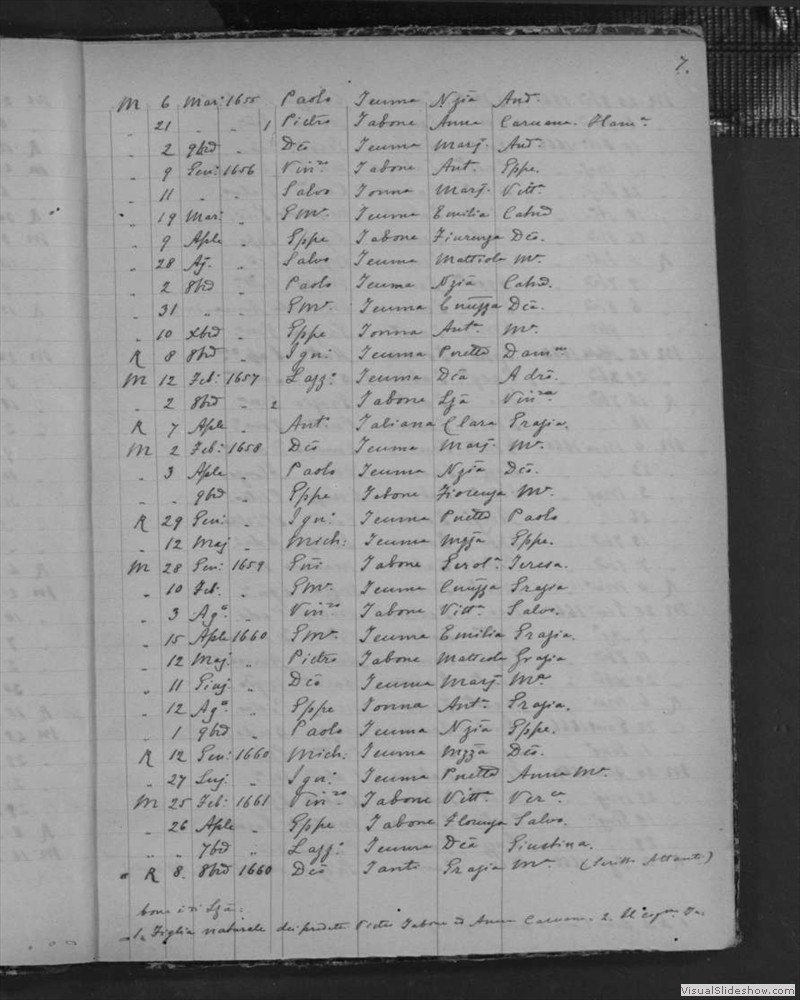 7.
M 6 Mar: 1655 Paolo Teuma Ngia And.
" 21 " " 1 Pietro Tabone Anna Caruana. Flam.
" 2 9brd " Dco Teuma Marj. And.
" 9 Gen: 1656 Vinzo Tabone Ant. Gppe.
" 11 " " Salvo Tonna Marj. Vitt.
" 19 Mar: " GMa. Teuma Emilia Catnd
" 9 Aple " Gppe Tabone Fiorenza Dca.
" 28 Ag. " Salvo Teuma Matteola Ma.
" 2 8brd " Paolo Teuma Ngia Catnd.
" 31 " " GMa. Teuma Cnuzza Dca.
" 10 Xbrd " Gppe Tonna Ant. Ma.
R 8 8brd " Igni: Teuma Pnetta Dam
M 12 Feb: 1657 Lazz: Teuma Dca Adre.
" 2 8brd " 2 Tabone Lza Vinza
R 7 Aple " Ant. Taliana Clara Grazia.
M 2 Feb: 1658 Dco Teuma Marj. Ma.
" 3 Aple " Paolo Teuma Ngia Dca.
" " 9brd " Gppe Tabone Fiorenza Ma.
R 29 Gen: " Igni: Teuma Pnetta Paolo
" 12 Maj " Mich: Teuma Mzza Gppe.
M 28 Gen: 1659 Gni Tabone Gerola Teresa.
" 10 Feb. " GMa. Teuma Cnuzza Grazia
" 3 Ago " Vinzo Tabone Vitt. Salva.
" 15 Aple 1660 GMa. Teuma Emilia Grazia.
" 12 Maj. " Pietro Tabone Matteola Grazia
" 11 Giuj " Dco Teuma Marj Ma
" 12 Ago " Gppe Tonna Ant. Grazia.
" 1 9brd " Paolo Teuma Ngia Gppe.
R 12 Gen: 1660 Mich: Teuma Mzza Dco.
" 27 Luj. " Igni: Teuma Pnetta Anna Ma.
M 25 Feb: 1661 Vinzo Tabone Vitta Ver
" 26 Aple " Gppe Tabone Florenza Salvo.
" " 7brd " Lazz: Teuma Dca Giustina.
R 8. 8brd 1660 Dco Tanti Grazia Ma
bone e di Lza:
1. Figlia naturale dei predetti Pietro Tabone ed Anna Caruana. 2. Il
VisualSlideshow.com